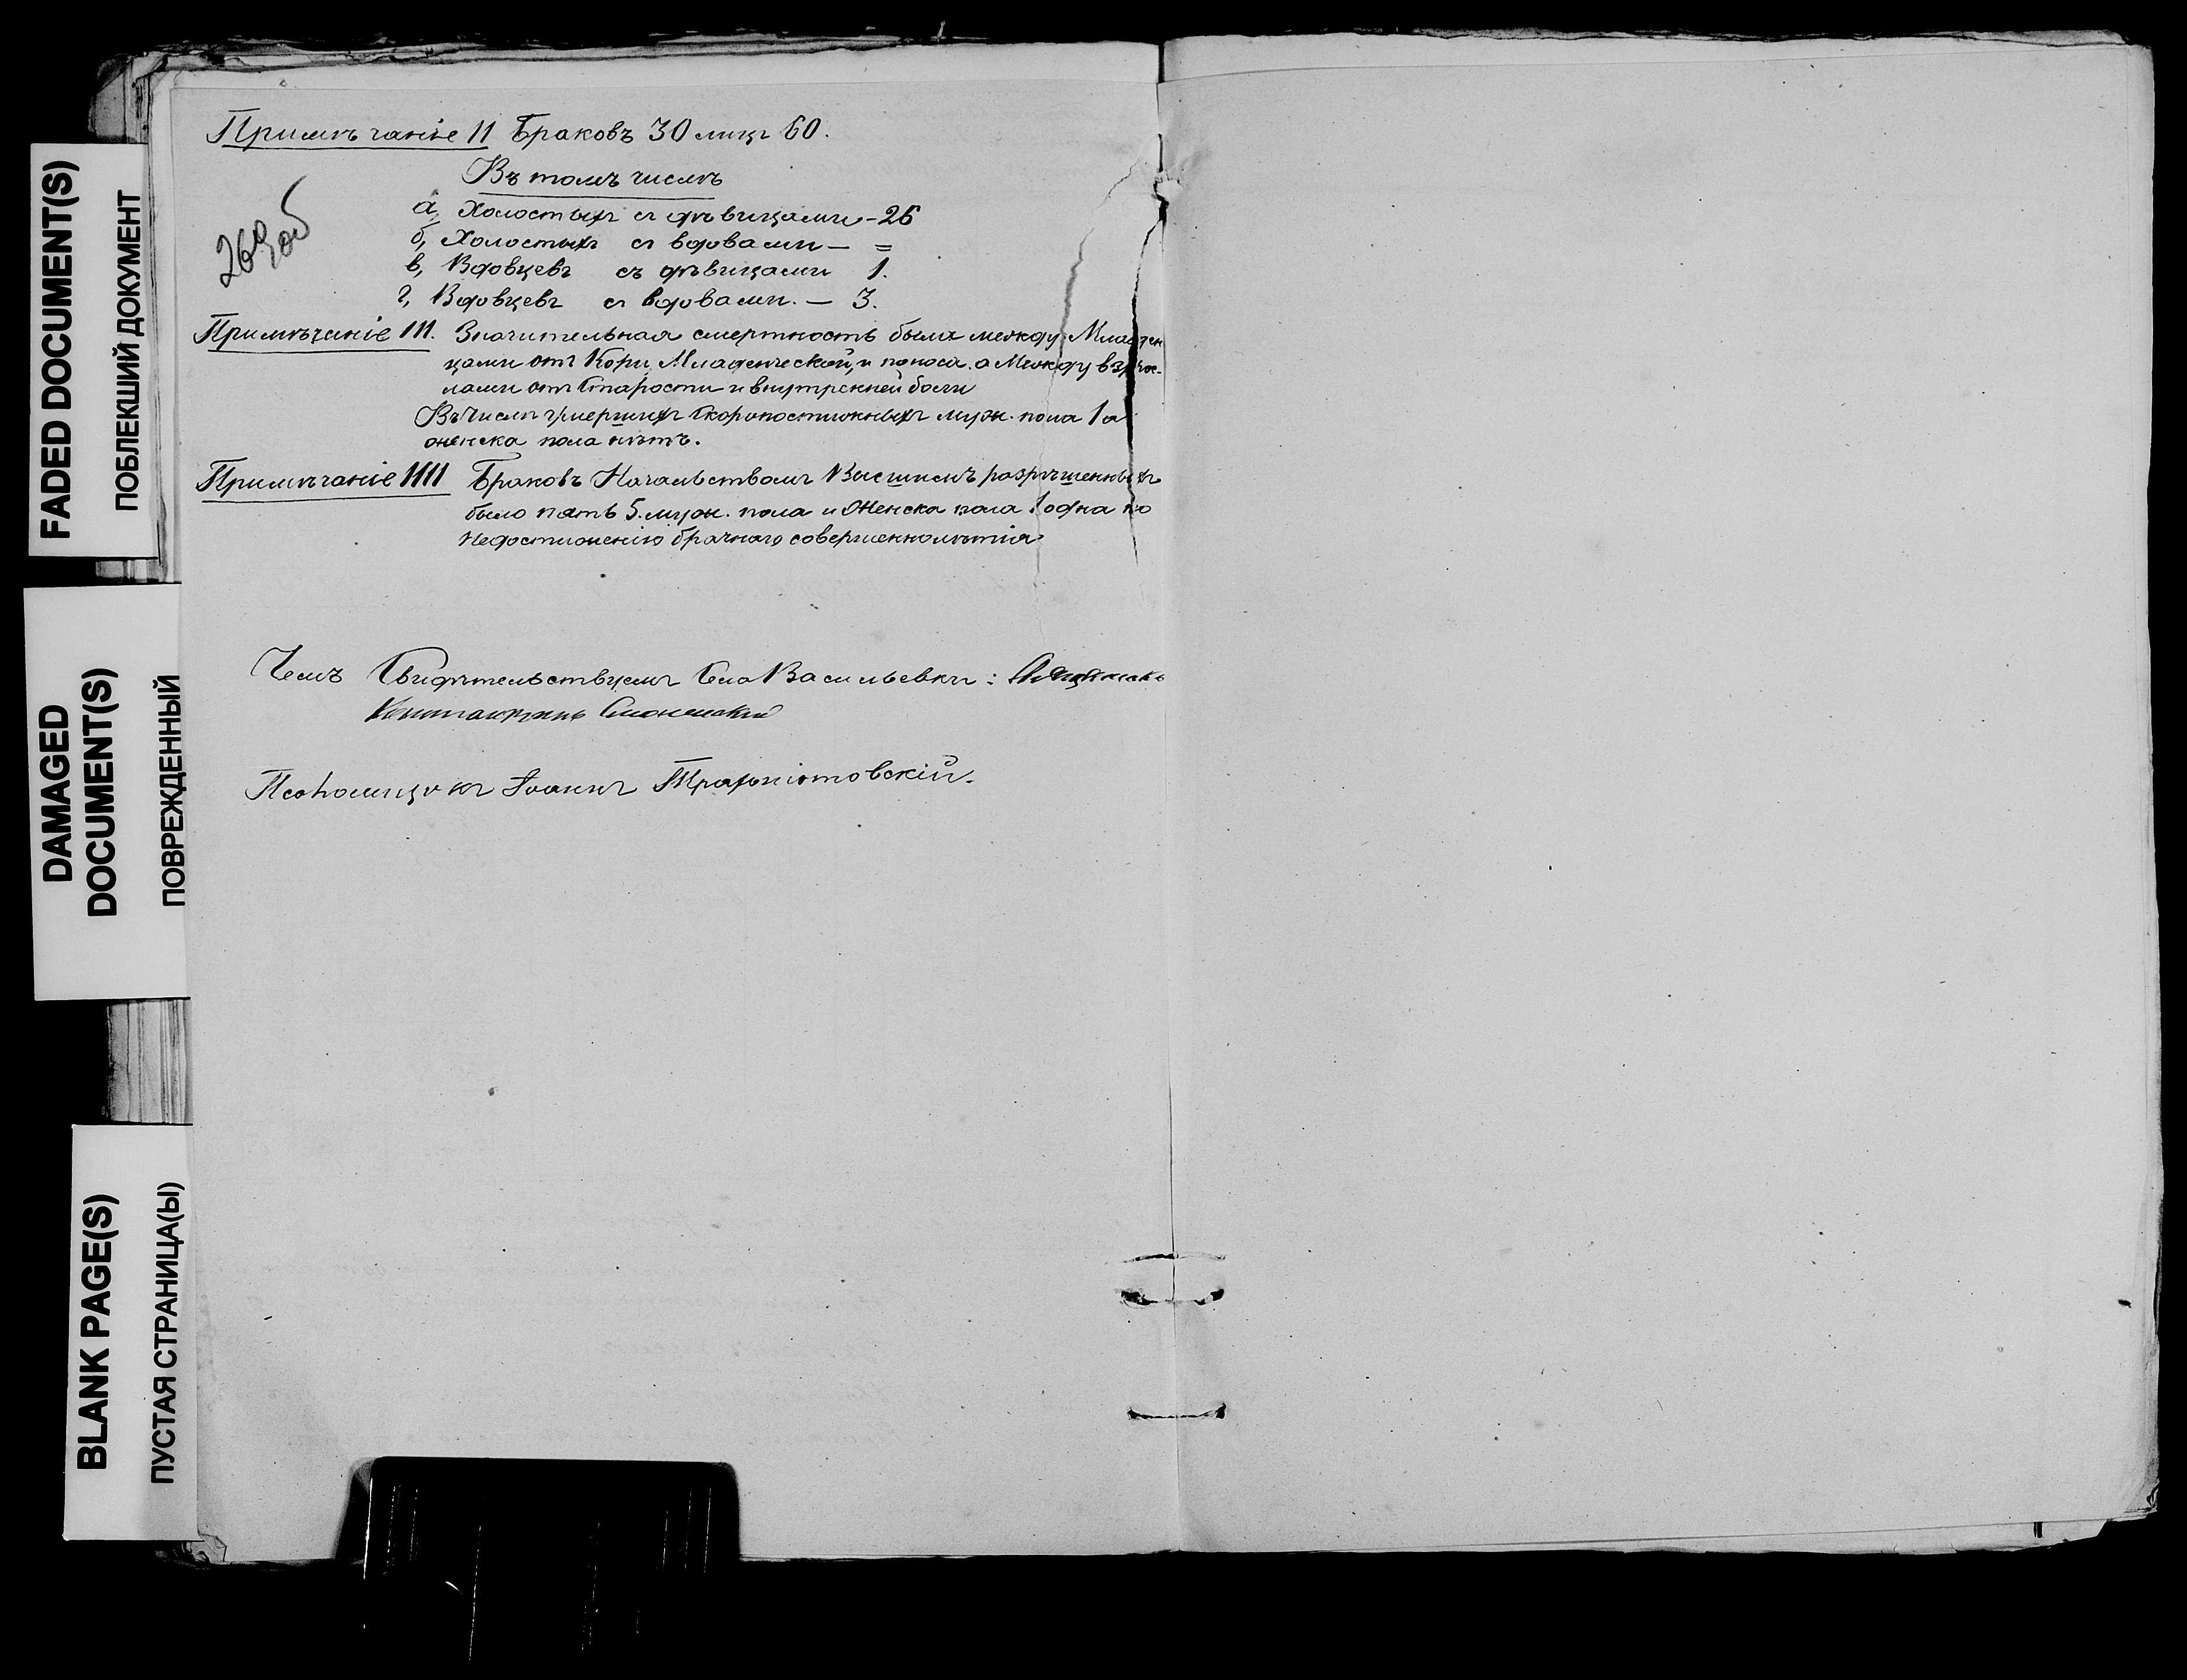 FADED DOCUMENT(S)
ПОБЛЕКШИЙ ДОКУМЕНТ
DAMAGED
DOCUMENT(S)
ПОВРЕЖДЕННЫЙ
BLANK PAGE(S)
ПУСТАЯ СТРАНИЦА(Ы)
269 об
Примѣчаніе II Браковъ 30 лицъ 60.
Въ томъ числѣ
а, Холостыхъ съ дѣвицами - 26
б, Холостыхъ съ вдовами — =
в, Вдовцевъ съ дѣвицами 1.
г, Вдовцевъ съ вдовами. — 3.
Примѣчаніе III. Значительная смертность была между Младен
цами отъ Кори, Младенческой, и поноса. а Между взрос-
лами отъ Старости и внутренней боли
Въ Числѣ умершихъ Скоропостижныхъ муж. пола 1 а
женска пола нѣтъ.
Примѣчаніе IIII Браковъ Начальствомъ Высшимъ разрѣшенныхъ
было пять 5. муж. пола и Женска пола 1 одна по
Недостиженію брачнаго совершеннолѣтія
Чемъ Свидѣтельствуемъ Села Васильевки: Священникъ
Константинъ
Псаломщикъ Іоаннъ